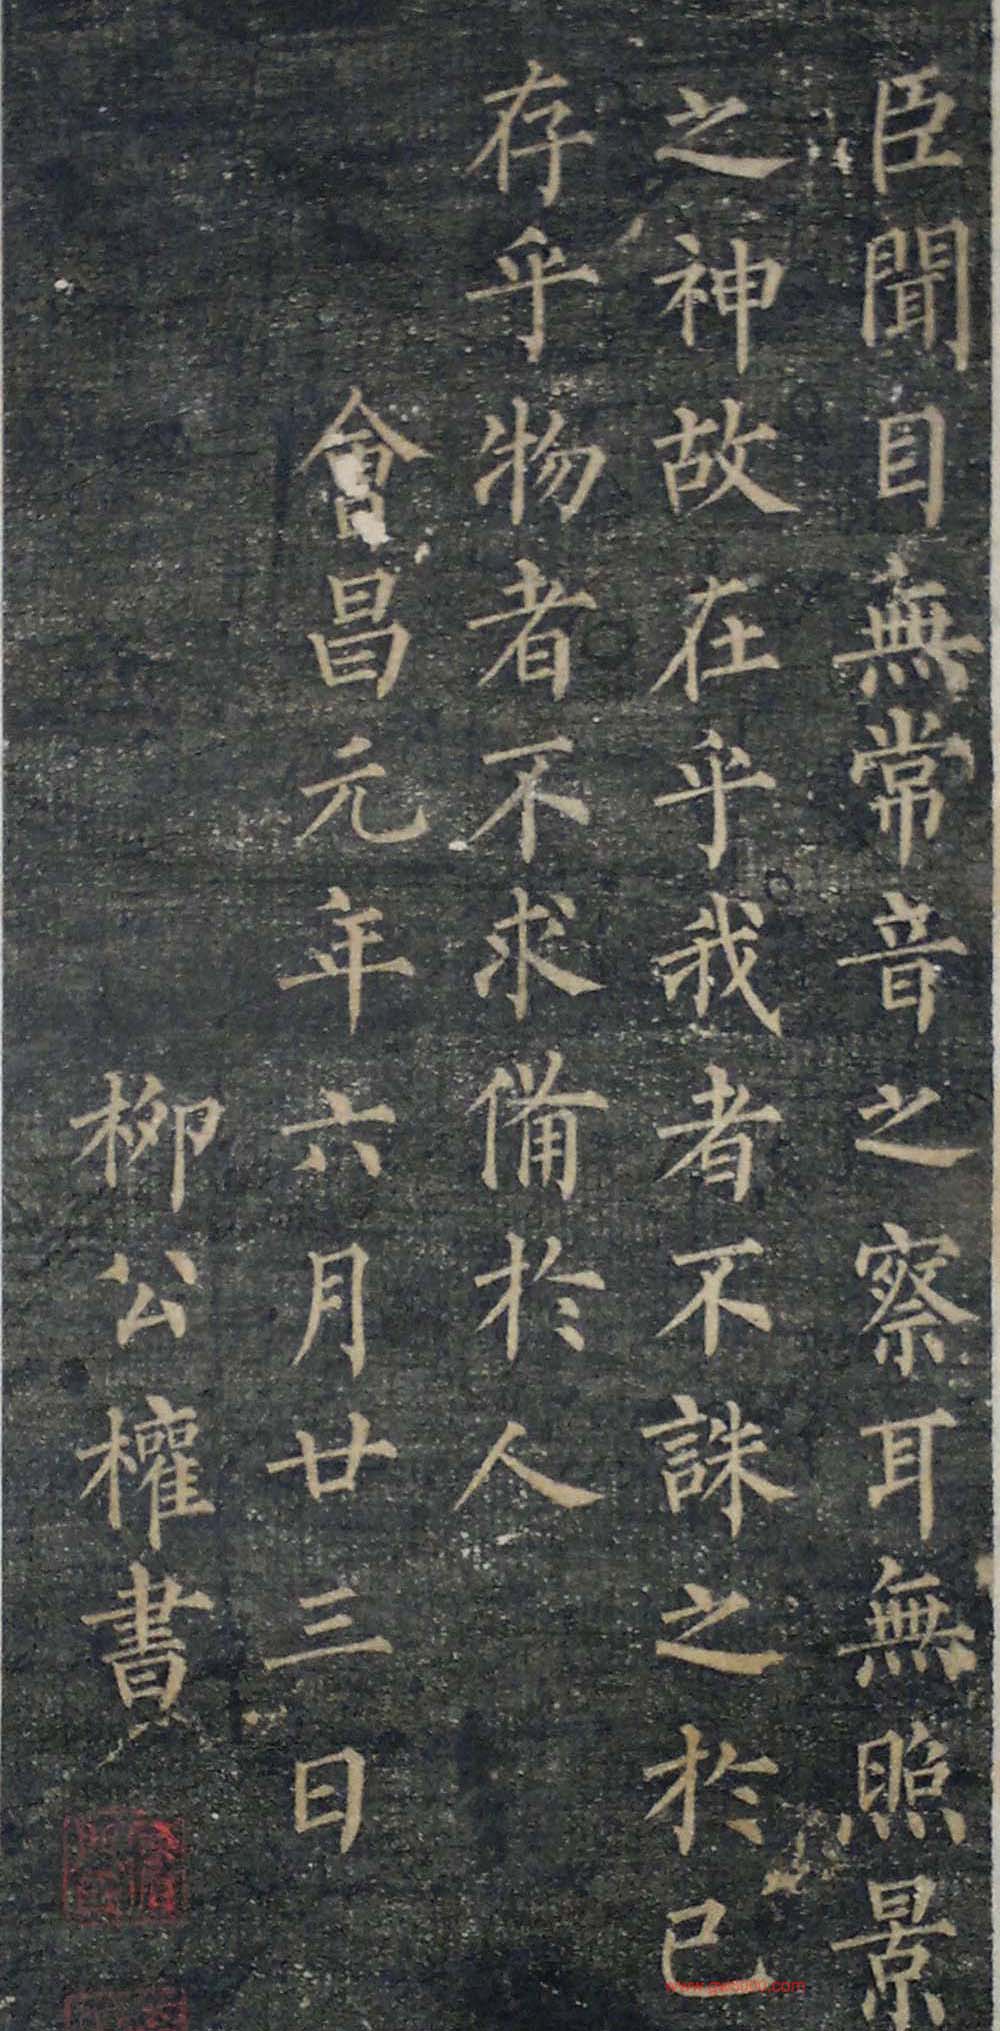 臣聞目無常音之察耳無照景
之神故在乎我者不誅之於己
存乎物者不求備於人
會昌元年六月廿三日
柳公權書